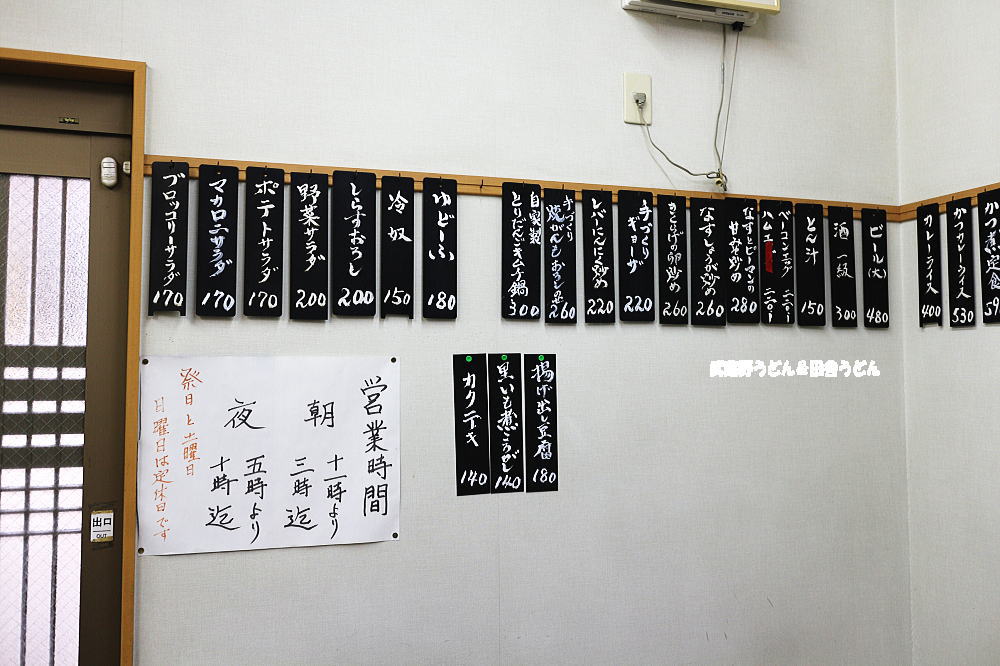 ブロッコリーサラダ
170
マカロニサラダ
170
ポテトサラダ
170
野菜サラダ
200
しらすおろし
200
冷奴
150
ゆどーふ
180
自家製
とりだんごキムチ鍋
300
手づくり
260
レバーにんにく炒め
220
手づくり
ギョーザ
220
きくらげの卵炒め
260
なすしょうが炒め
260
なすとピーマンの
甘みそ炒め
280
ベーコンエッグ 二二〇
ハムエ
二二〇
とん汁
150
酒 一級
300
ビール(大)
480
カレーライス
400
かつカレーライス
530
かつ煮定食
59
営業時間
朝
十一時より
三時迄
夜
五時より
十時迄
祭日と土曜日
日曜日は定休日です
カクテキ
140
黒いも煮ころがし
140
揚げ出し豆腐
180
出口
OUT
武蔵野うどん&田舎うどん